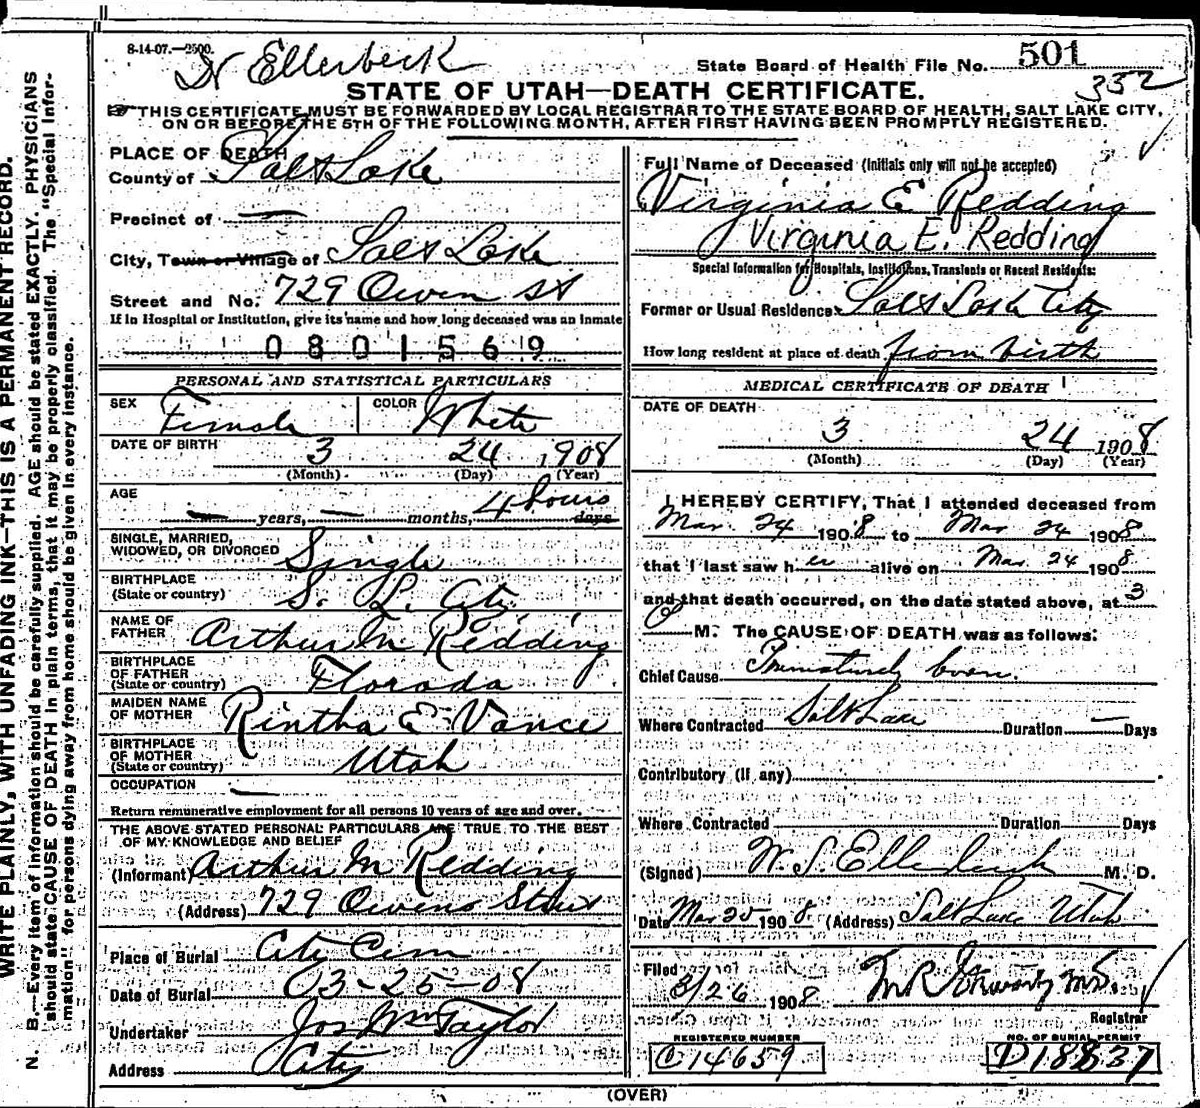 8-14-07.—2500.
Dr Ellerbeck
State Board of Health File No. 501
352
STATE OF UTAH—DEATH CERTIFICATE.
THIS CERTIFICATE MUST BE FORWARDED BY LOCAL REGISTRAR TO THE STATE BOARD OF HEALTH, SALT LAKE CITY,
ON OR BEFORE THE 5TH OF THE FOLLOWING MONTH, AFTER FIRST HAVING BEEN PROMPTLY REGISTERED.
WRITE PLAINLY, WITH UNFADING INK—THIS IS A PERMANENT RECORD.
N. B.—Every item of information should be carefully supplied. AGE should be stated EXACTLY. PHYSICIANS
should state CAUSE OF DEATH in plain terms, that it may be properly classified. The "Special Infor-
mation" for persons dying away from home should be given in every instance.
PLACE OF DEATH
County of Salt Lake
Precinct of —
City, Town or Village of Salt Lake
Street and No. 729 Owen St
If in Hospital or Institution, give its name and how long deceased was an inmate
0801569
PERSONAL AND STATISTICAL PARTICULARS
SEX Female COLOR White
DATE OF BIRTH 3 24 1908
(Month) (Day) (Year)
AGE
— years, — months, 4 hours days
SINGLE, MARRIED,
WIDOWED, OR DIVORCED Single
BIRTHPLACE
(State or country) S. L. City
NAME OF
FATHER Arthur M Redding
BIRTHPLACE
OF FATHER
(State or country) Florada
MAIDEN NAME
OF MOTHER Rintha E Vance
BIRTHPLACE
OF MOTHER
(State or country) Utah
OCCUPATION —
Return remunerative employment for all persons 10 years of age and over.
THE ABOVE STATED PERSONAL PARTICULARS ARE TRUE TO THE BEST
OF MY KNOWLEDGE AND BELIEF
(Informant) Arthur M Redding
(Address) 729 Owens Street
Place of Burial City Cem
Date of Burial 03-25-08
Undertaker Jos Wm Taylor
Address City
Full Name of Deceased (Initials only will not be accepted)
Virginia E Redding
Virginia E. Redding
Special Information for Hospitals, Institutions, Transients or Recent Residents:
Former or Usual Residence Salt Lake City
How long resident at place of death from birth
MEDICAL CERTIFICATE OF DEATH
DATE OF DEATH
3 24 1908
(Month) (Day) (Year)
I HEREBY CERTIFY, That I attended deceased from
Mar. 24 1908 to Mar 24 1908
that I last saw her alive on Mar 24 1908
and that death occurred, on the date stated above, at 3
P M. The CAUSE OF DEATH was as follows:
Chief Cause Prematurely born.
Where Contracted Salt Lake Duration — Days
Contributory (if any)
Where Contracted Duration Days
(Signed) W. S. Ellerbeck M. D.
Date Mar 25 1908 (Address) Salt Lake Utah
Filed 3/26 1908
Registrar
REGISTERED NUMBER
C14659
NO. OF BURIAL PERMIT
D18837
(OVER)